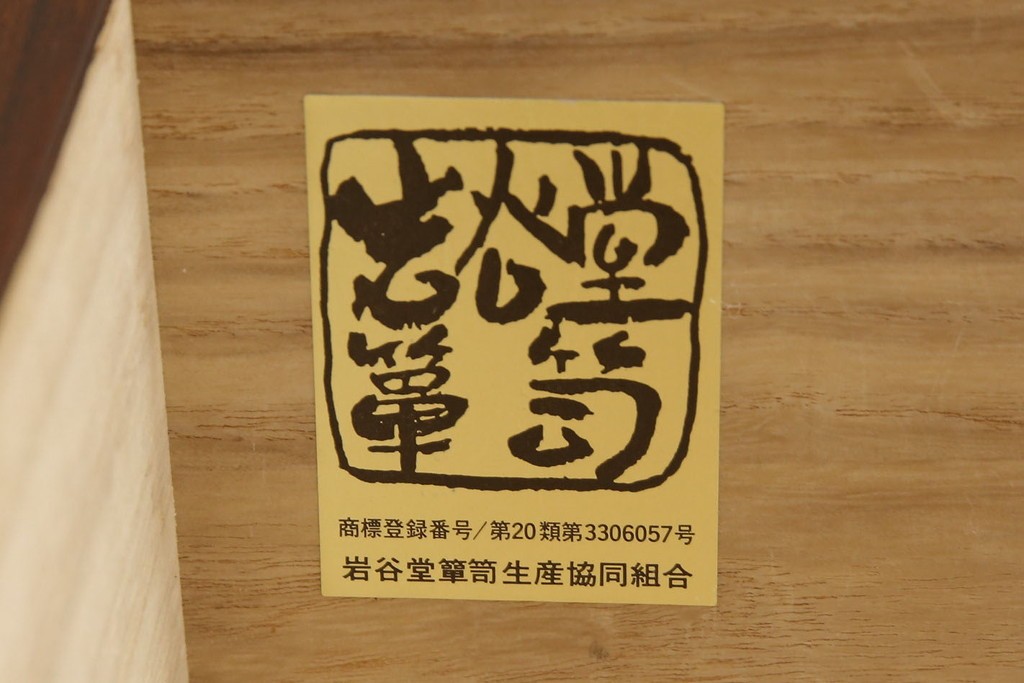 岩谷堂
簞笥
商標登録番号/第20類第3306057号
岩谷堂簞笥生産協同組合